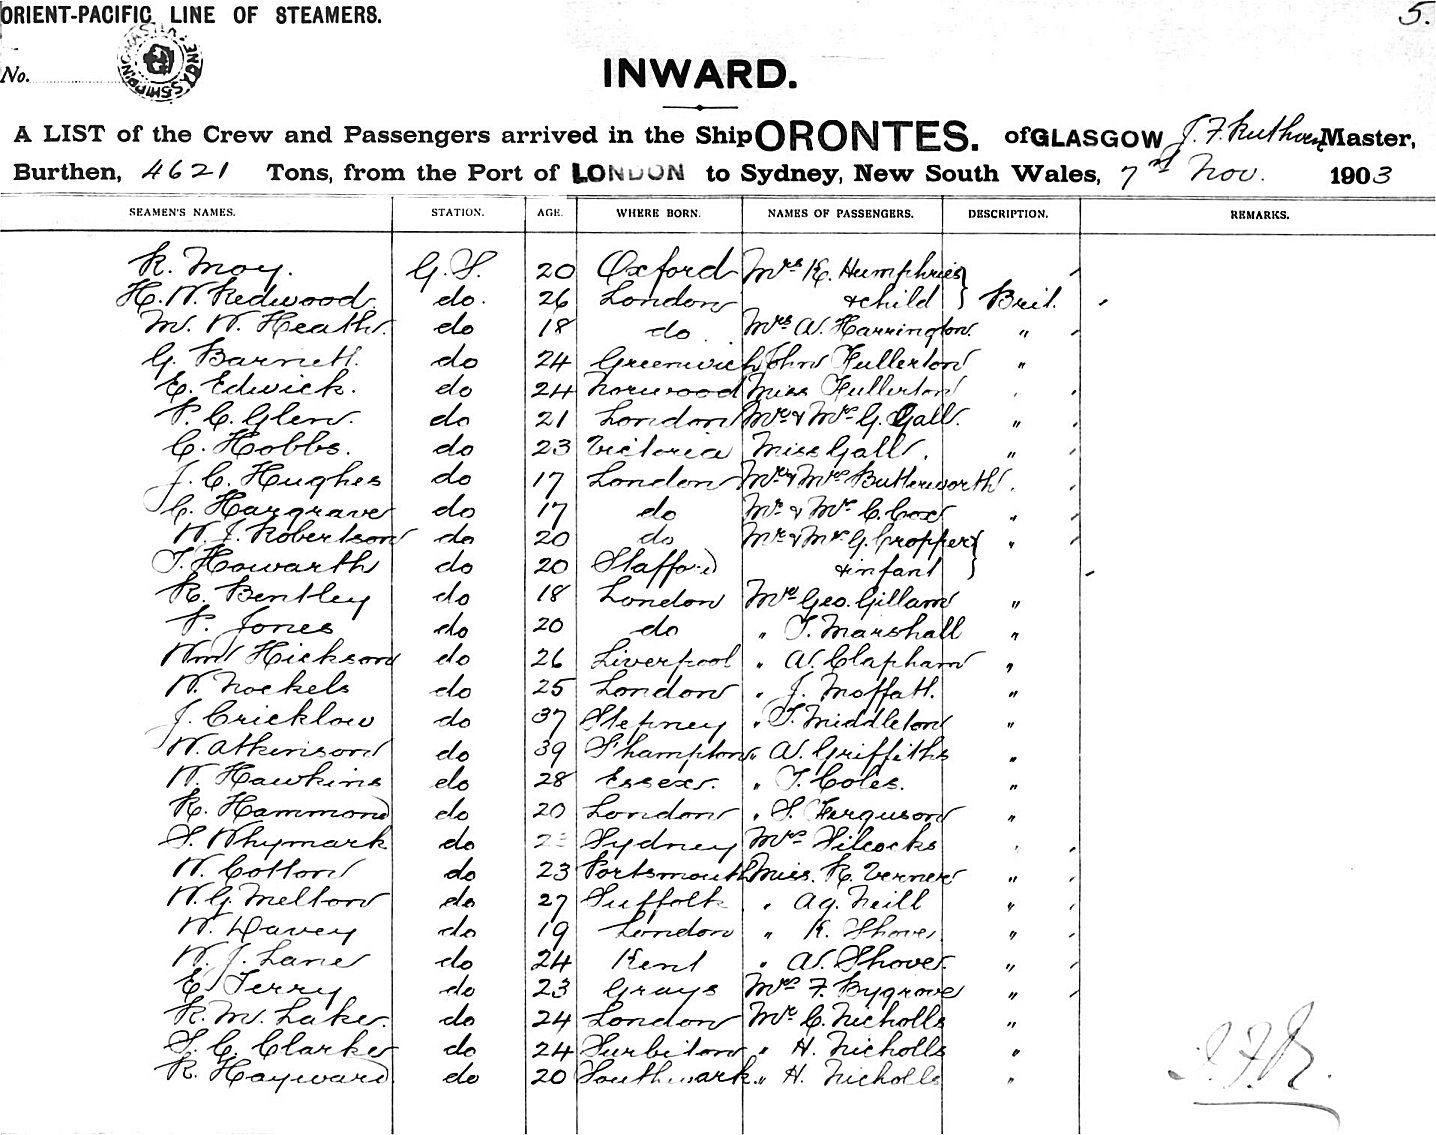 ORIENT-PACIFIC LINE OF STEAMERS.
5.
No.
INWARD.
A LIST of the Crew and Passengers arrived in the Ship ORONTES. of GLASGOW J. F. Ruthven Master,
Burthen, 4621 Tons, from the Port of LONDON to Sydney, New South Wales, 7th Nov. 1903
SEAMEN'S NAMES. STATION. AGE. WHERE BORN. NAMES OF PASSENGERS. DESCRIPTION. REMARKS.
R. Moy. G. S. 20 Oxford Mrs K. Humphries
H. W. Redwood. do. 26 London & child } Brit.
M. W. Heath. do 18 do Mrs A. Harrington "
G. Barnett. do 24 Greenwich John Fullerton "
E. Edwick. do 24 Norwood Miss Fullerton
P. C. Glen. do 21 London Mr & Mrs G. Gall. "
C. Hobbs. do 23 Victoria Miss Gall. "
J. C. Hughes do 17 London Mr & Mrs Butterworth
C. Hargrave do 17 do Mr & Mrs C. Cox "
W. J. Robertson do 20 do Mr & Mrs G. Cropper "
T. Howarth do 20 Stafford & infant }
R. Bentley do 18 London Mr Geo. Gillam "
P. Jones do 20 do " T. Marshall "
Wm Hickson do 26 Liverpool " A. Clapham "
W. Nockels do 25 London " J. Moffatt. "
J. Cricklow do 37 Stepney " T. Middleton "
W. Atkinson do 39 S'hampton " A. Griffiths "
W. Hawkins do 28 Essex. " T. Coles. "
R. Hammond do 20 London " S. Ferguson "
S. Whymark do Sydney Mrs Silcocks
W. Cotton do 23 Portsmouth Miss. R. Verner "
W. G. Melton do 27 Suffolk " Ag. Neill "
W. Davey do 19 London " K. Shove. "
W. J. Lane do 24 Kent " A. Shove. "
E. Terry do 23 Grays Mrs F. Bygrove "
R. M. Lake. do 24 London Mr C. Nicholls "
S. C. Clarke do 24 Surbiton " H. Nicholls "
R. Hayward do 20 Southwark. " H. Nicholls "
J. F. R.